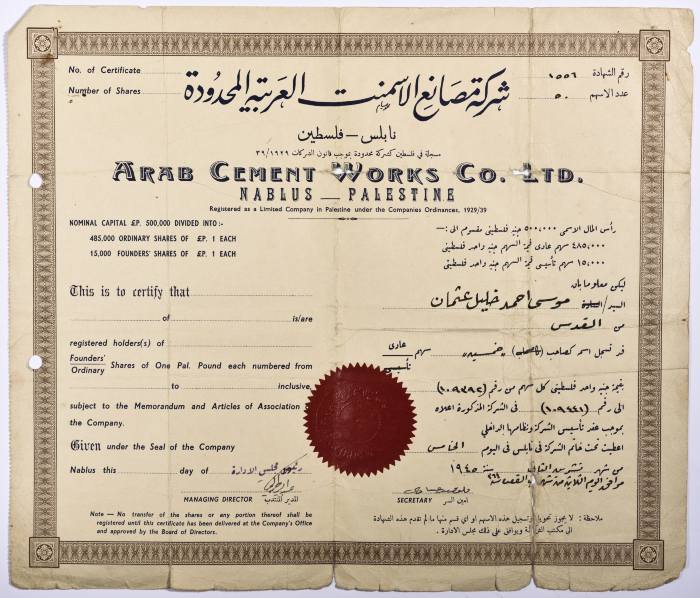 No. of Certificate
رقم الشهادة ١٥٥٦
Number of Shares
عدد الاسهم ٥٠
شركة مصانع الاسمنت العربية المحدودة
نابلس — فلسطين
مسجلة في فلسطين كشركة محدودة بموجب قانون الشركات ٣٩/١٩٢٩
ARAB CEMENT WORKS CO. LTD.
NABLUS — PALESTINE
Registered as a Limited Company in Palestine under the Companies Ordinances, 1929/39
NOMINAL CAPITAL £P. 500,000 DIVIDED INTO:-
485,000 ORDINARY SHARES OF £P. 1 EACH
15,000 FOUNDERS' SHARES OF £P. 1 EACH
رأس المال الاسمى ٥٠٠,٠٠٠ جنيه فلسطيني مقسوم الى :—
٤٨٥,٠٠٠ سهم عادى قيمة السهم جنيه واحد فلسطيني
١٥,٠٠٠ سهم تأسيسى قيمة السهم جنيه واحد فلسطيني
This is to certify that
of is/are
registered holders(s) of
Founders'
Ordinary Shares of One Pal. Pound each numbered from
to inclusive,
subject to the Memorandum and Articles of Association of
the Company.
Given under the Seal of the Company
Nablus this day of
ليكن معلوما بان
السيد/السيدة موسى احمد خليل عثمان
من القدس
قد تسجل اسم كصاحب (كاصحاب) «خمسين» سهم عادى
تأسيسى
بقيمة جنيه واحد فلسطيني كل سهم من رقم (١٠٩٣٩٢)
الى رقم (١٠٩٤٤١) فى الشركة المذكورة اعلاه
بموجب عقد تأسيس الشركة ونظامها الداخلي
اعطيت تحت خاتم الشركة فى نابلس فى اليوم الخامس
من شهر تشرين الثاني سنة ١٩٤٥
رئيس مجلس الادارة
MANAGING DIRECTOR المدير المنتدب
SECRETARY أمين السر
Note — No transfer of the shares or any portion thereof shall be
registered until this certificate has been delivered at the Company's Office
and approved by the Board of Directors.
ملاحظة : لا يجوز تحويل او تسجيل هذه الاسهم او اي قسم منها ما لم تقدم هذه الشهادة
الى مكتب الشركة ويوافق على ذلك مجلس الادارة .